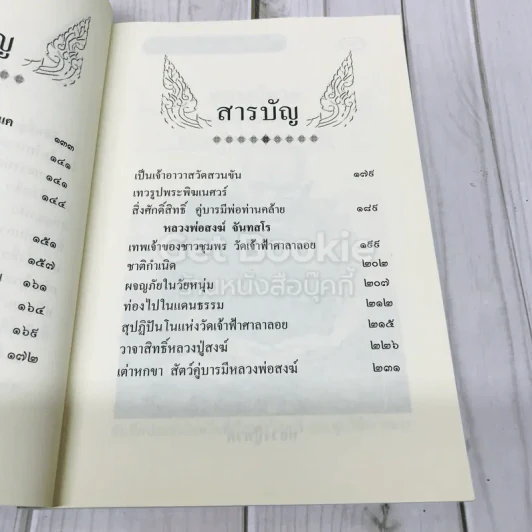 ญ
๑๓๓
๑๔๑
๑๔๑
๑๔๔
๑๕๑
๑๕๗
๑๖๑
๑๖๔
๑๖๙
๑๗๒
สารบัญ
เป็นเจ้าอาวาสวัดสวนขัน ๑๗๙
เทวรูปพระพิฆเนศวร์
สิ่งศักดิ์สิทธิ์ คู่บารมีพ่อท่านคล้าย ๑๘๙
หลวงพ่อสงฆ์ จันทสโร
เทพเจ้าของชาวชุมพร วัดเจ้าฟ้าศาลาลอย ๑๙๙
ชาติกำเนิด ๒๐๒
ผจญภัยในวัยหนุ่ม ๒๐๗
ท่องไปในแดนธรรม ๒๑๒
สุปฏิปันโนแห่งวัดเจ้าฟ้าศาลาลอย ๒๑๕
วาจาสิทธิ์หลวงปู่สงฆ์ ๒๒๖
เต่าหกขา สัตว์คู่บารมีหลวงพ่อสงฆ์ ๒๓๑
Get Bookie
ร้านหนังสือบุ๊คกี้